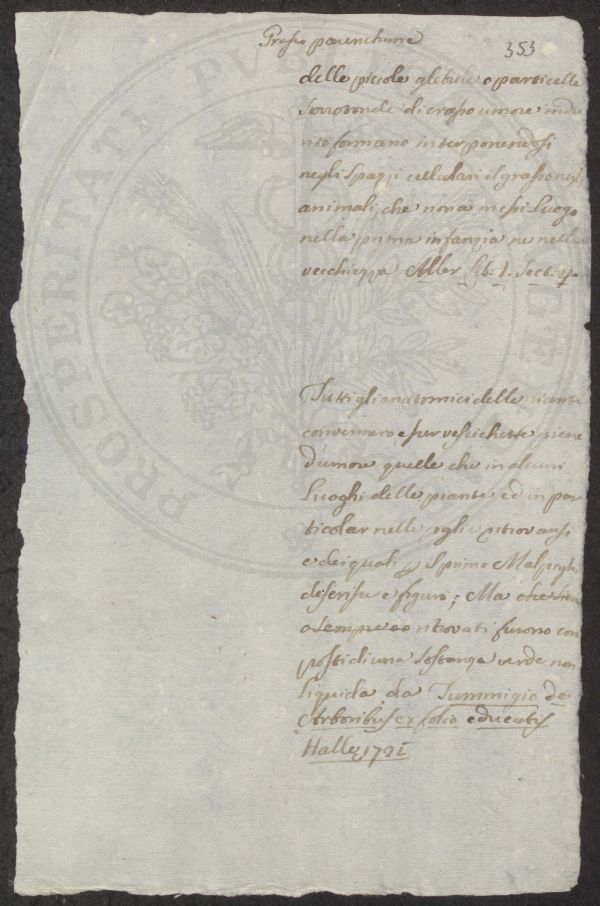 Grasso parenchime
353
delle piccole glebule o particelle
sorotonde di craso umore indu
rito formano interponendosi
negli spazji cellulari il grasso negl
animali, che non a in essi luogo
nella prima infanzia ne nella
vecchiezza Aller Lib. 1. Sect. 4
Tutti gli anatomici delle piante
convennero esser vescichette piene
d'umore quelle che in alcuni
luoghi delle piante ed in par
ticolar nelle foglie ritrovansi
e dei quali il primo Malpighi
descrisse e figurò; Ma che siano
o sempre o ritrovati furono com
posti di una sostanza verde non
liquida da Tummigio de
Arboribus ex folio educatis
Hallę 1721
PROSPERITATI PVBL